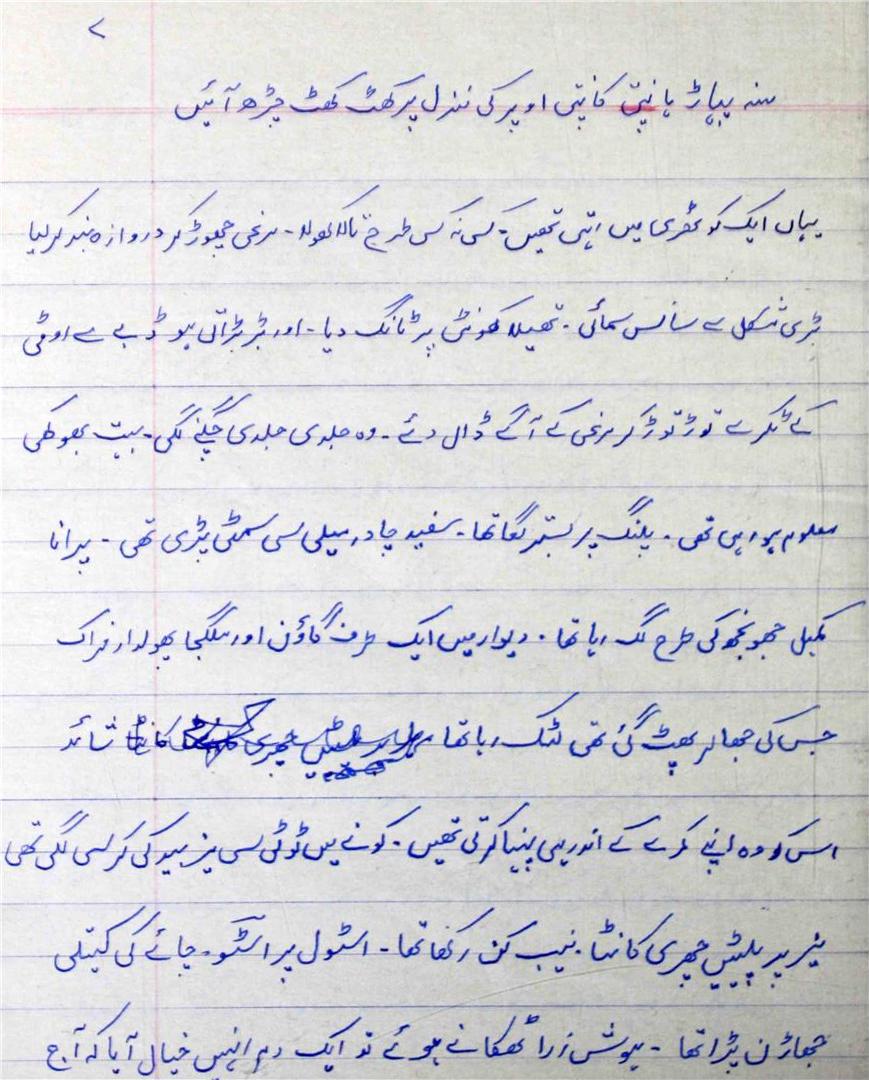 ۷
منہ پہاڑ ہانپتی کانپتی اوپر کی منزل پر کھٹ کھٹ چڑھ آئیں
یہاں ایک کوٹھری میں رہتی تھیں۔ کسی نہ کسی طرح تالا کھولا۔ مرغی چھوڑ کر دروازہ بند کر لیا
بڑی مشکل سے سانس سمائی۔ تھیلا کھونٹی پر ٹانگ دیا۔ اور بڑبڑاتی ہوئی ڈبے سے روٹی
کے ٹکڑے توڑ توڑ کر مرغی کے آگے ڈال دئے۔ وہ جلدی جلدی چگنے لگی۔ بہت بھوکی
معلوم ہو رہی تھی۔ پلنگ پر بستر لگا تھا۔ سفید چادر میلی سی سمٹی پڑی تھی۔ پرانا
کمبل جھونجھ کی طرح لگ رہا تھا۔ دیوار میں ایک طرف گاؤن اور ملگجا پھولدار فراک
جس کی جھالر پھٹ گئی تھی لٹک رہا تھا شائد
اس کو وہ اپنے کمرے کے اندر ہی پہنا کرتی تھیں۔ کونے میں ٹوٹی سی میز بید کی کرسی لگی تھی
میز پر پلیٹیں چھری کانٹا۔ نیپ کن رکھا تھا۔ اسٹول پر اسٹو۔ چائے کی کیتلی
جھاڑن پڑا تھا۔ ہوش ذرا ٹھکانے ہوئے تو ایک دم انہیں خیال آیا کہ آج